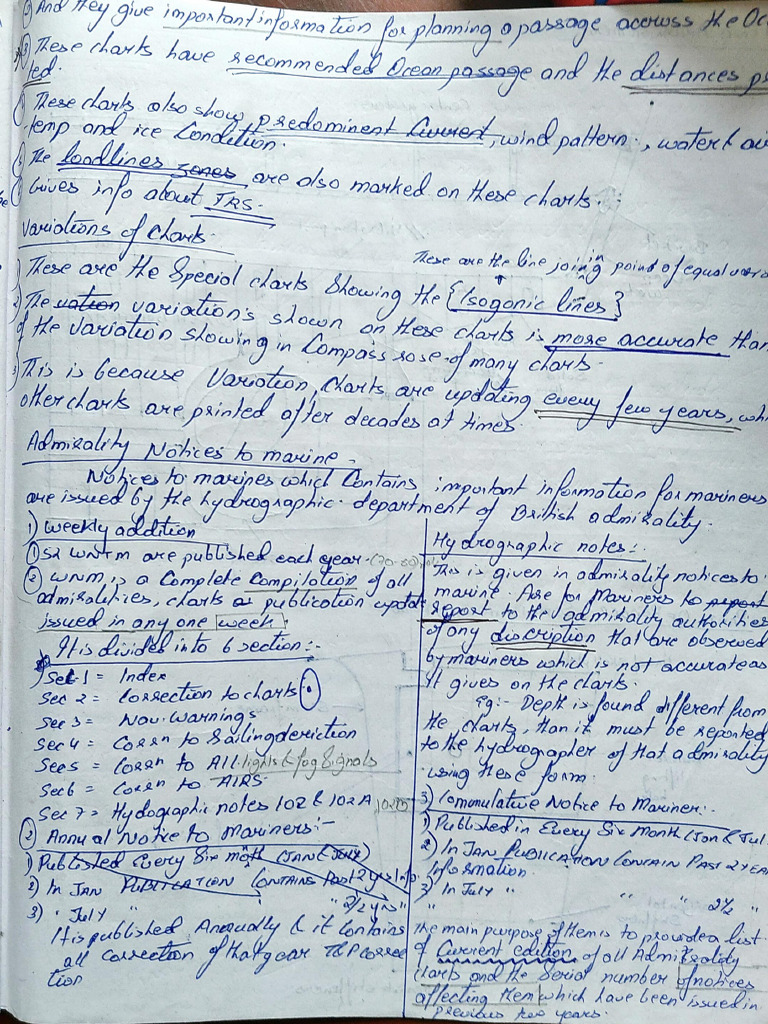 And they give important information for planning a passage accross the Oc
These charts have recommended Ocean passage and the distances p
ted.
These charts also show predominent Current, wind pattern, water & ai
temp and ice Condition.
The loadlines zones are also marked on these charts.
Gives info about TRS.
Variations of Charts
These are the line joining point of equal
1) These are the Special charts Showing the {Isogonic lines}
2) The variation's shown on these charts is more accurate than
of the variation showing in Compass rose of many charts.
3) This is because Variation Charts are updating every few years, whi
other charts are printed after decades at times.
Admirality Notices to marine -
Notices to marines which Contains important information for mariners
are issued by the hydrographic department of British admirality.
1) Weekly addition
① 52 WNTM are published each year
② WNM is a Complete Compilation of all
admiralities, charts publication update
issued in any one week.
It is divided into 6 section:-
Sec-1 = Index
Sec 2 = Correction to charts
Sec 3 = Nav. Warnings
Sec 4 = Corrn to Sailing deriction
Sec 5 = Corrn to All lights & fog Signals
Sec 6 = Corrn to ALRS
Sec 7 = Hydographic notes 102 & 102A
② Annual Notice to Mariners:-
1) Published Every Six moth (JAN & JULY)
2) In JAN PUBLICATION CONTAINS Past 2 yrs Info.
3) " July " " 2 1/2 yrs "
It is published Annually & it Contains
all correction of that year T&P Correc
tion
Hydrographic notes:-
This is given in admirality notices to
marine. Are for Mariners to
report to the admirality autkorities
of any discription that are observed
by mariners which is not accurate as
it gives on the charts.
Eg:- Depth is found different from
the charts, than it must be reported
to the hydrographer of that admirality
using these form.
3) Commulative Notice to Mariner:-
1) Published in Every Six month (Jan & Jul
2) In JAN PUBLICATION CONTAIN PAST 2 YEA
Information.
3) In July " " 2 1/2 "
The main purpose of them is to provide a list
of Current edition of all Admirality
charts and the Serial number of notices
affecting them which have been issued in
previous two years.